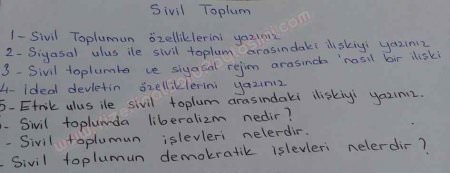 Sivil Toplum
1- Sivil Toplumun özelliklerini yazınız
2- Siyasal ulus ile sivil toplum arasındaki ilişkiyi yazınız
3- Sivil toplumla ve siyasal rejim arasında nasıl bir ilişki
4- İdeal devletin özelliklerini yazınız
5- Etnik ulus ile sivil toplum arasındaki ilişkiyi yazınız.
- Sivil toplumda liberalizm nedir?
- Sivil toplumun işlevleri nelerdir.
- Sivil toplumun demokratik işlevleri nelerdir?